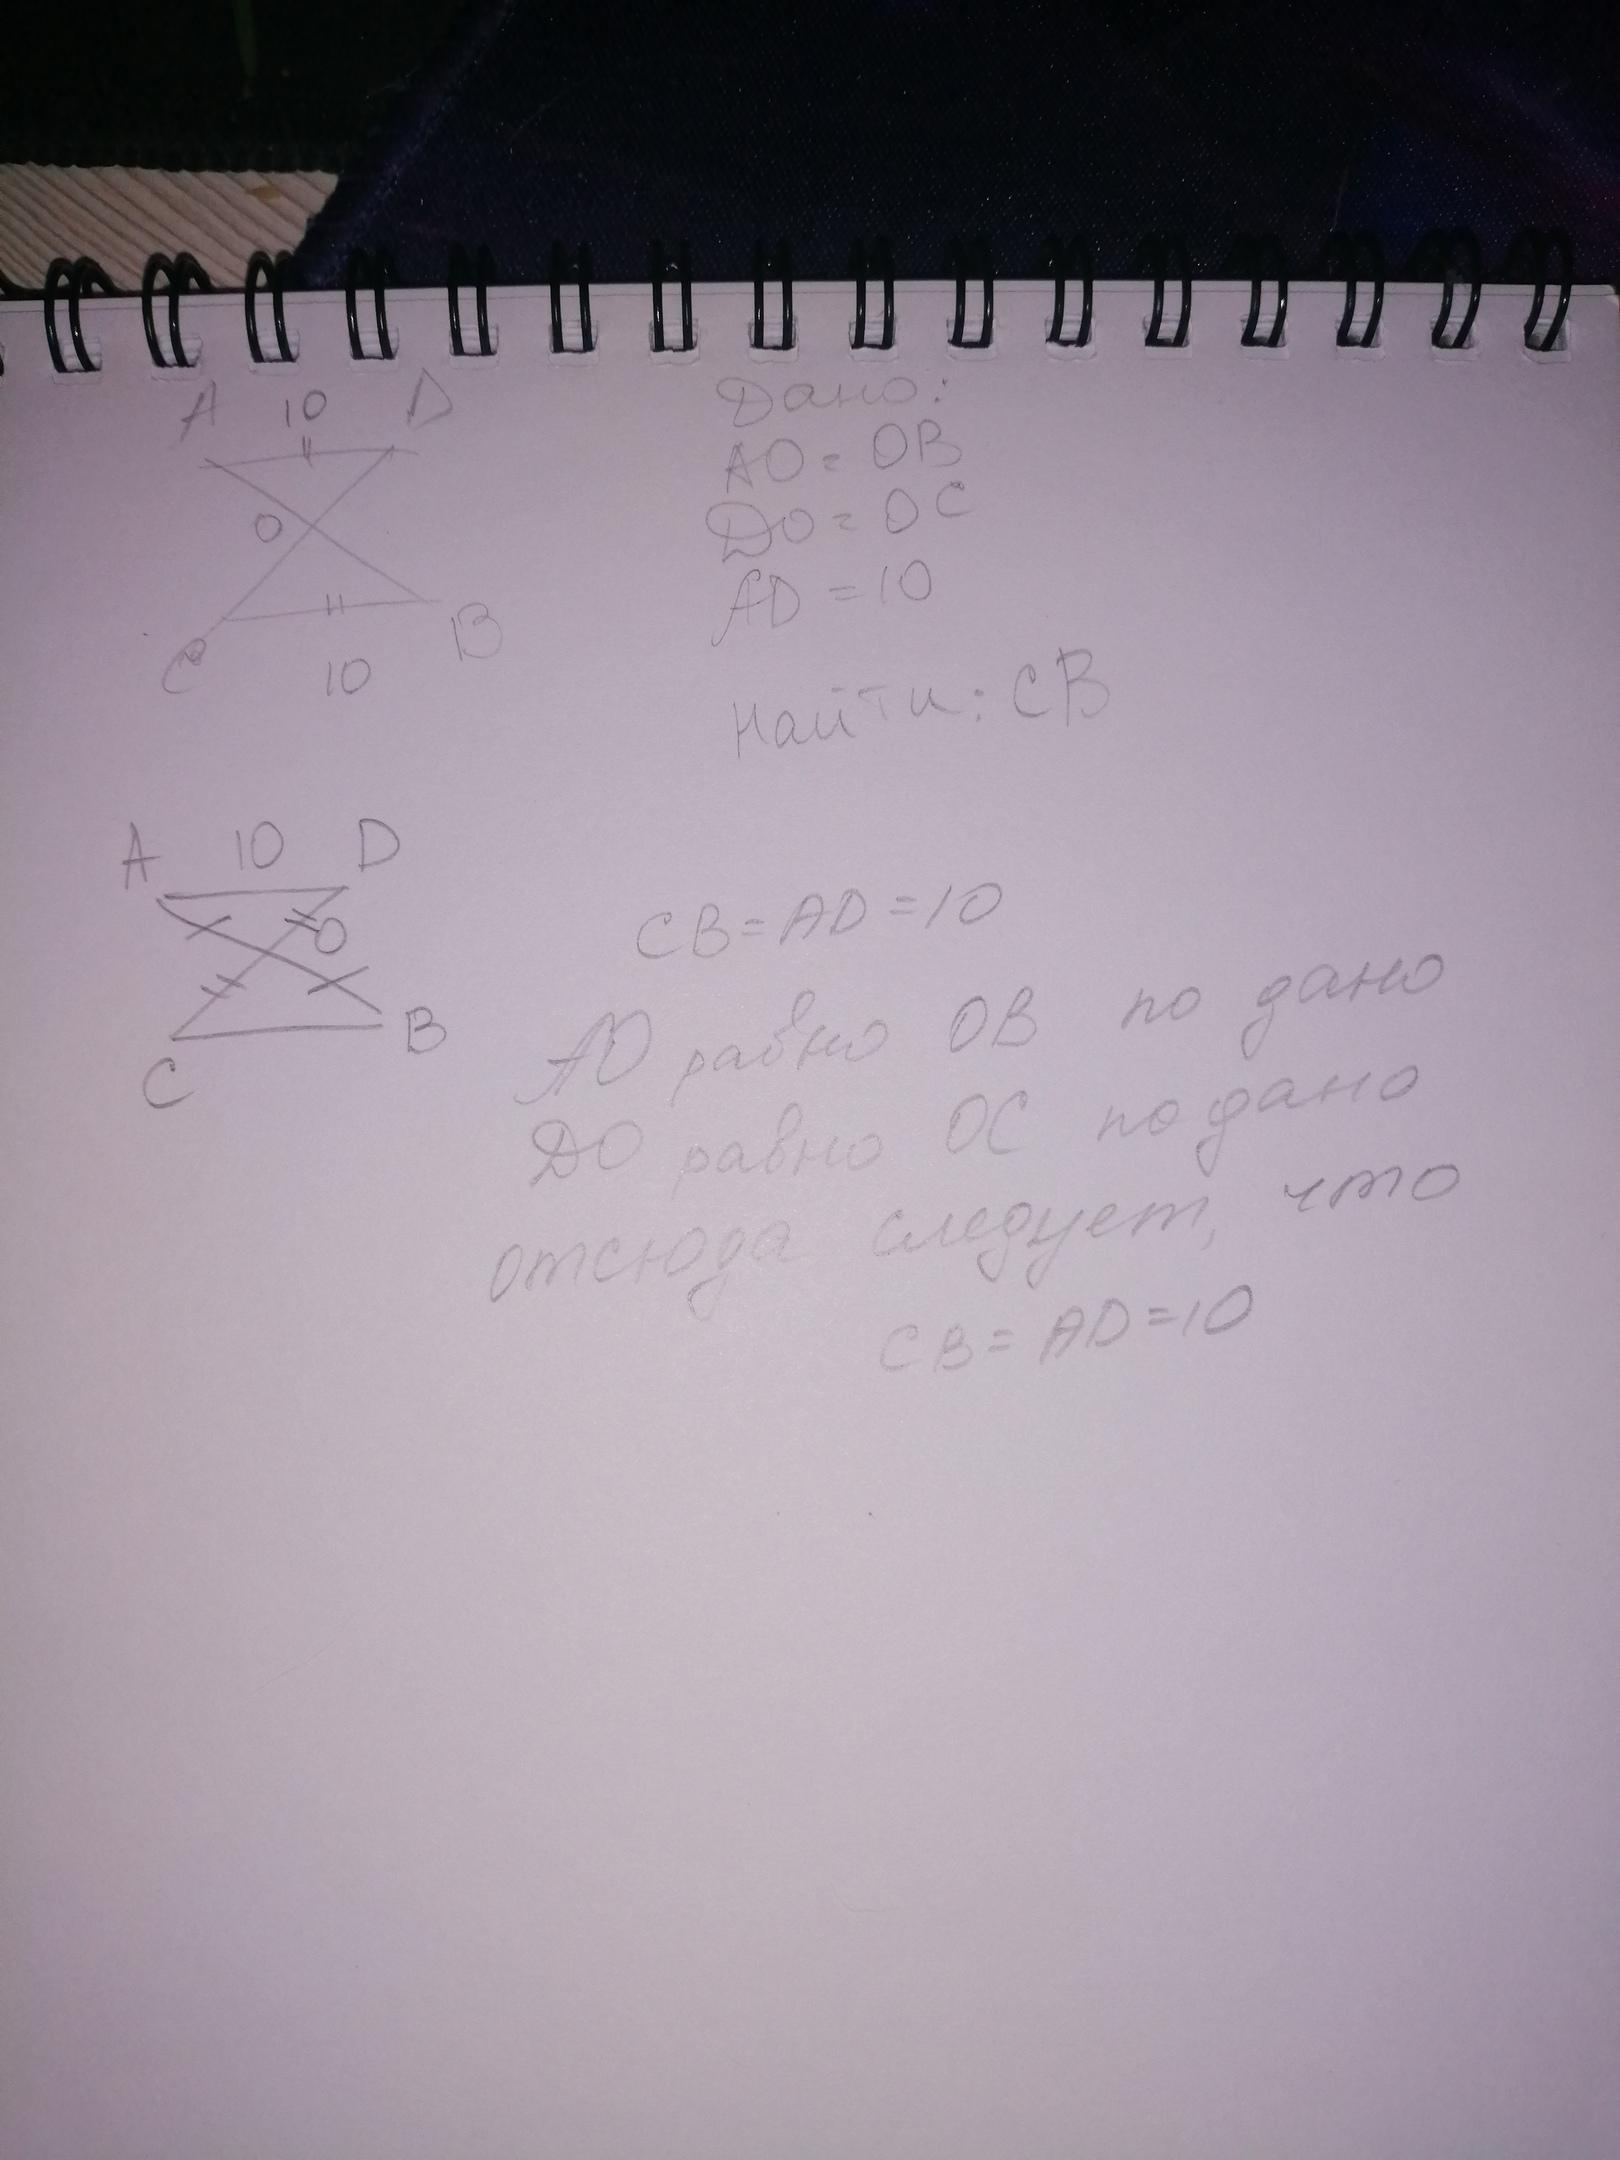 A 10 D
O
C 10 B
Дано:
AO = OB
DO = OC
AD = 10
Найти: CB
A 10 D
O
C B
CB = AD = 10
AO равно OB по дано
DO равно OC по дано
отсюда следует, что
CB = AD = 10